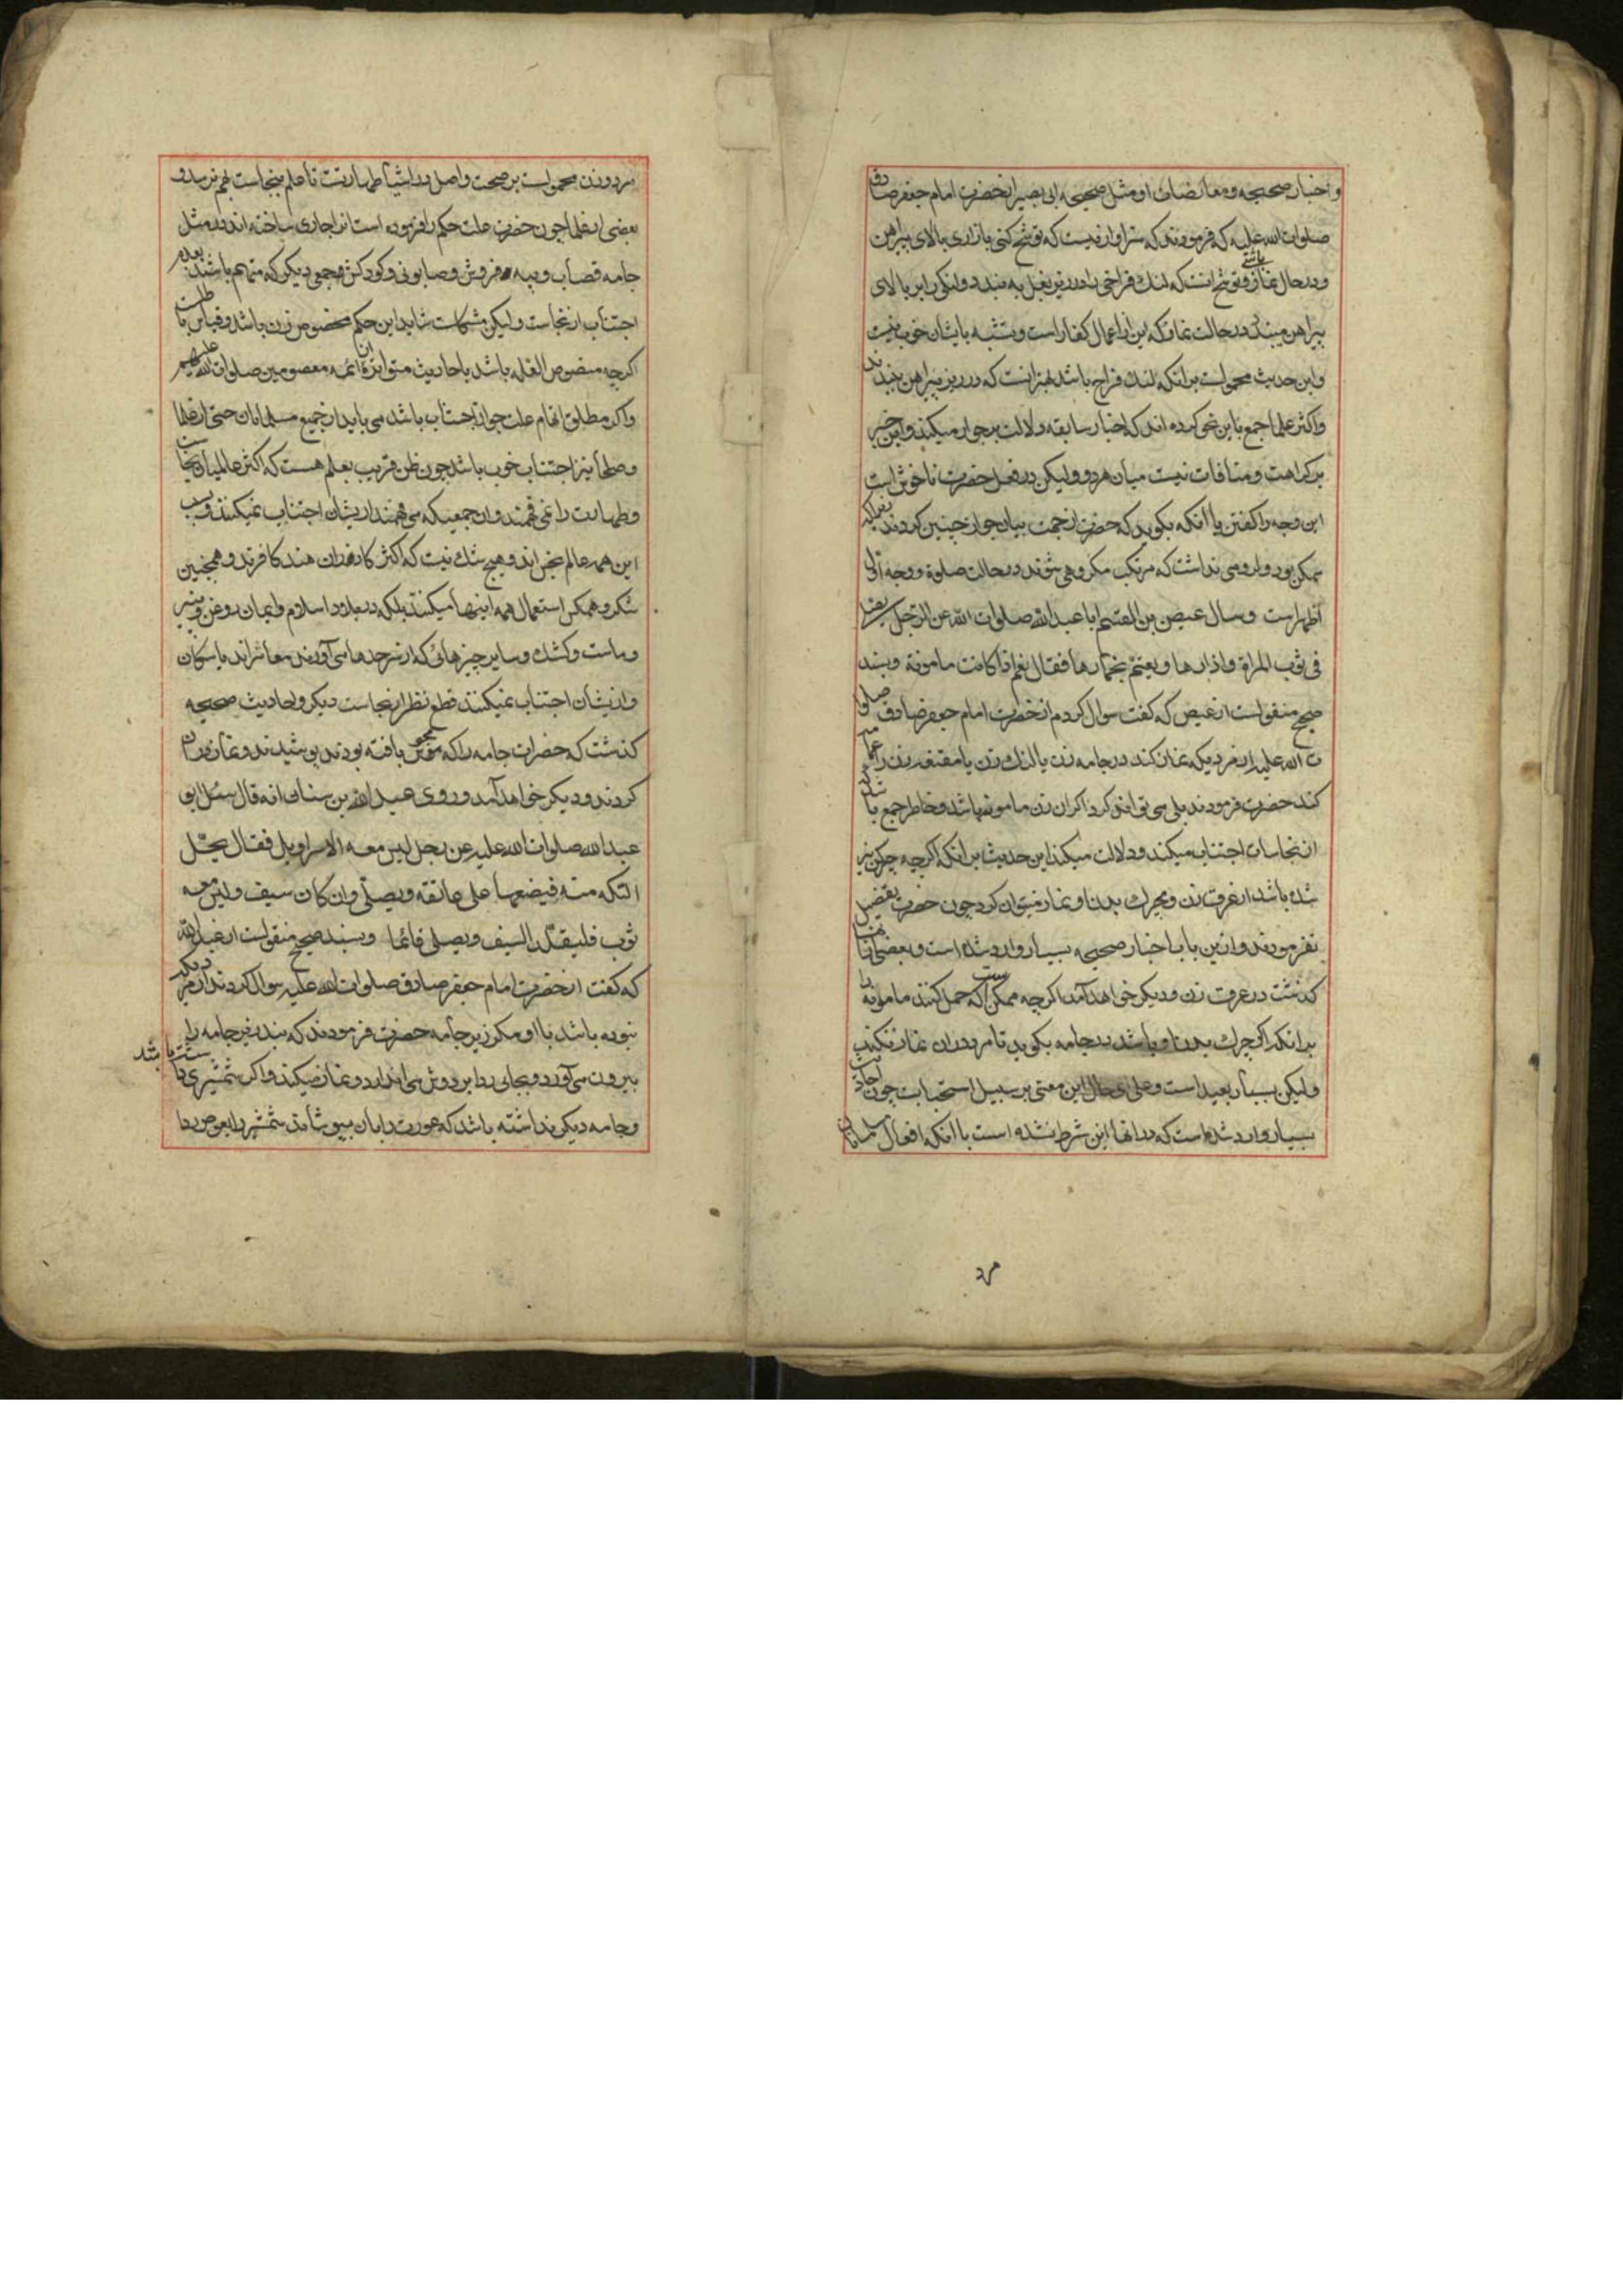 و اخبار صحیحه و معارضات او مثل صحیحه ابی بصیر از حضرت امام جعفر صادق
صلوات الله علیه که فرمودند که سزاوار نیست که توشح کنی بازاری بالای پیراهن
و در حال نماز باشی و توشح انست که لنک فراخی را در زیر بغل به بندد و لنکی را بر بالای
پیراهن ببندد در حالت نماز که این از اعمال کفار است و تشبه بایشان خوب نیست
و این حدیث محمولست برانکه لنک فراخ باشد بهتر انست که در زیر پیراهن بندند
و اکثر علما جمع باین نحو کرده اند که اخبار سابقه دلالت بر جواز میکند و این خبر
بر کراهت و منافات نیست میان هر دو و لیکن در فعل حضرت ناخوش است
این وجه را کفتن یا انکه بکوید که حضرت از جهت بیان جواز چنین کردند بغیر انکه
ممکن بود و لزومی نداشت که مرتکب مکروهی شوند در حالت صلوة و وجه اول
اظهر است و سال عیص بن القسم ابا عبد الله صلوات الله عن الرجل یصلی
فی ثوب المراة و ازارها و یعتم بخمارها فقال نعم اذا کانت مامونة و بسند
صحیح منقولست از عیص که کفت سوال کردم از حضرت امام جعفر صادق صلوا
ت الله علیه از مردیکه نماز کند در جامه زن یا لنک زن یا مقنعه زن را عمامه
کند حضرت فرمودند بلی می توانند کرد اکر ان زن مامونه باشد و خاطر جمع باشد که
از نجاسات اجتناب میکند و دلالت میکند این حدیث بر انکه اکر چه چرکین نیز
شده باشد از عرق زن و بچرک بدن او نماز میتوان کرد چون حضرت تفصیل
نفرمودند و ازین باب اخبار صحیحه بسیار وارد شده است و بعضی از انها
کذشت در عرق زن و دیکر خواهد آمد اکر چه ممکن است که حمل کنند مامونه را
برانکه اکر چرک بدن او باشد در جامه بکوید تا مرد در ان نماز نکند
و لیکن بسیار بعید است و علی ای حال این معنی بر سبیل استحبابست چون احادیث
بسیار وارد شده است که در انها این شرط نشده است با انکه افعال مسلمانان
مرد
مرد و زن محمولست بر صحت و اصل در اشیا طهارتست تا علم بنجاست بهم نرسد و
بعضی از علما چون حضرت علت حکم را فرموده است انرا جاری ساخته اند در مثل
جامه قصاب و پیه فروش و صابونی و کودکش و جمعی دیکر که متهم باشند بعدم
اجتناب از نجاست و لیکن مشکلست شاید این حکم مخصوص زن باشد و قیاس باطلست
اکر چه منصوص العله باشد باحادیث متواتره از ائمه معصومین صلوات الله علیهم
و اکر مطلق اتهام علت جواز اجتناب باشد می باید از جمیع مسلمانان حتی از علما
و صلحا نیز اجتناب خوب باشد چون ظن قریب بعلم هست که اکثر عالمیان نجاست
و طهارت را نمی فهمند و ان جمعیکه می فهمند از یشان اجتناب نمیکنند و سبب
این همه عالم نجس اند و هیچ شک نیست که اکثر کافران هند کافرند و همچنین
شکر و همکس استعمال همه اینها میکنند بلکه در بلاد اسلام و ایمان روغن و پنیر
و ماست و کشک و سایر چیزهائی که از سرحدها می آورند معاشراند با سکان
و از یشان اجتناب نمیکنند قطع نظر از نجاست دیکر و احادیث صحیحه
کذشت که حضرات جامه را که مجوس بافته بودند پوشیدند و نماز دران
کردند و دیکر خواهد آمد و روی عبد الله بن سنان انه قال سئل ابی
عبد الله صلوات الله علیه عن رجل لیس معه الا سراویل فقال یحل
التکه منه فیضعها علی عاتقه و یصلی و ان کان سیف و لیس معه
ثوب فلیتقلد السیف و یصلی قائما و بسند صحیح منقولست از عبد الله
که کفت از حضرت امام جعفر صادق صلوات الله علیه سوال کردند از مردیکه
نبوده باشد با او مکر زیر جامه حضرت فرمودند که بند زیر جامه را
بیرون می آورد و بجای ردا بر دوش می اندازد و نماز میکند و اکر شمشیری داشته باشد
و جامه دیکر نداشته باشد که عورت را بان بپوشاند شمشیر را بعوض ردا